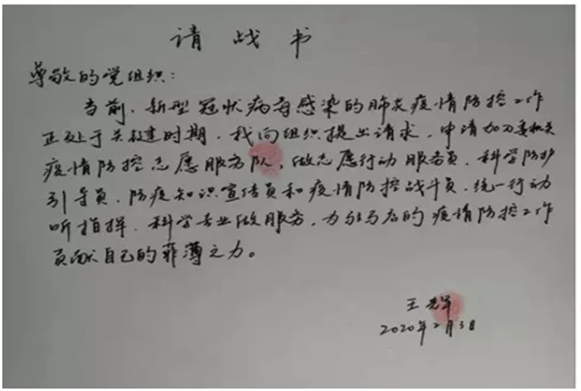 请战书
尊敬的党组织：
当前，新型冠状病毒感染的肺炎疫情防控工作
正处于关键时期，我向组织提出请求，申请加入委机关
疫情防控志愿服务队，做志愿行动服务员、科学防护
引导员、防疫知识宣传员和疫情防控战斗员，统一行动
听指挥，科学专业做服务，为驻马店的疫情防控工作
贡献自己的菲薄之力。
王
2020年2月3日